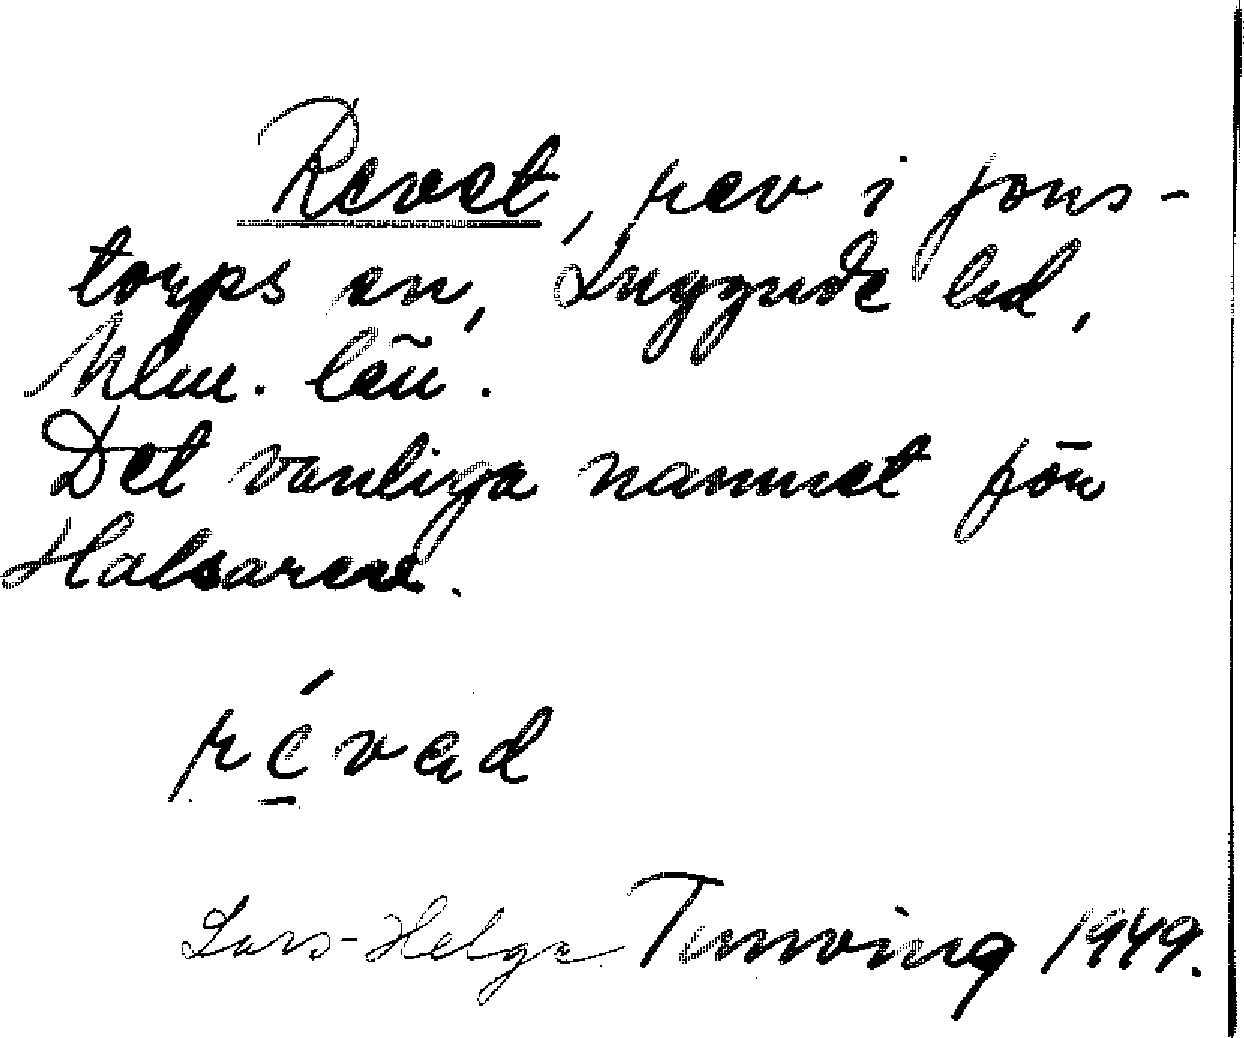 Revet, rev i Jons-
torps sn, Luggude hd,
Mlm. län.
Det vanliga namnet för
Halsarevet.
révad
Lars-Helge Tunving 1949.